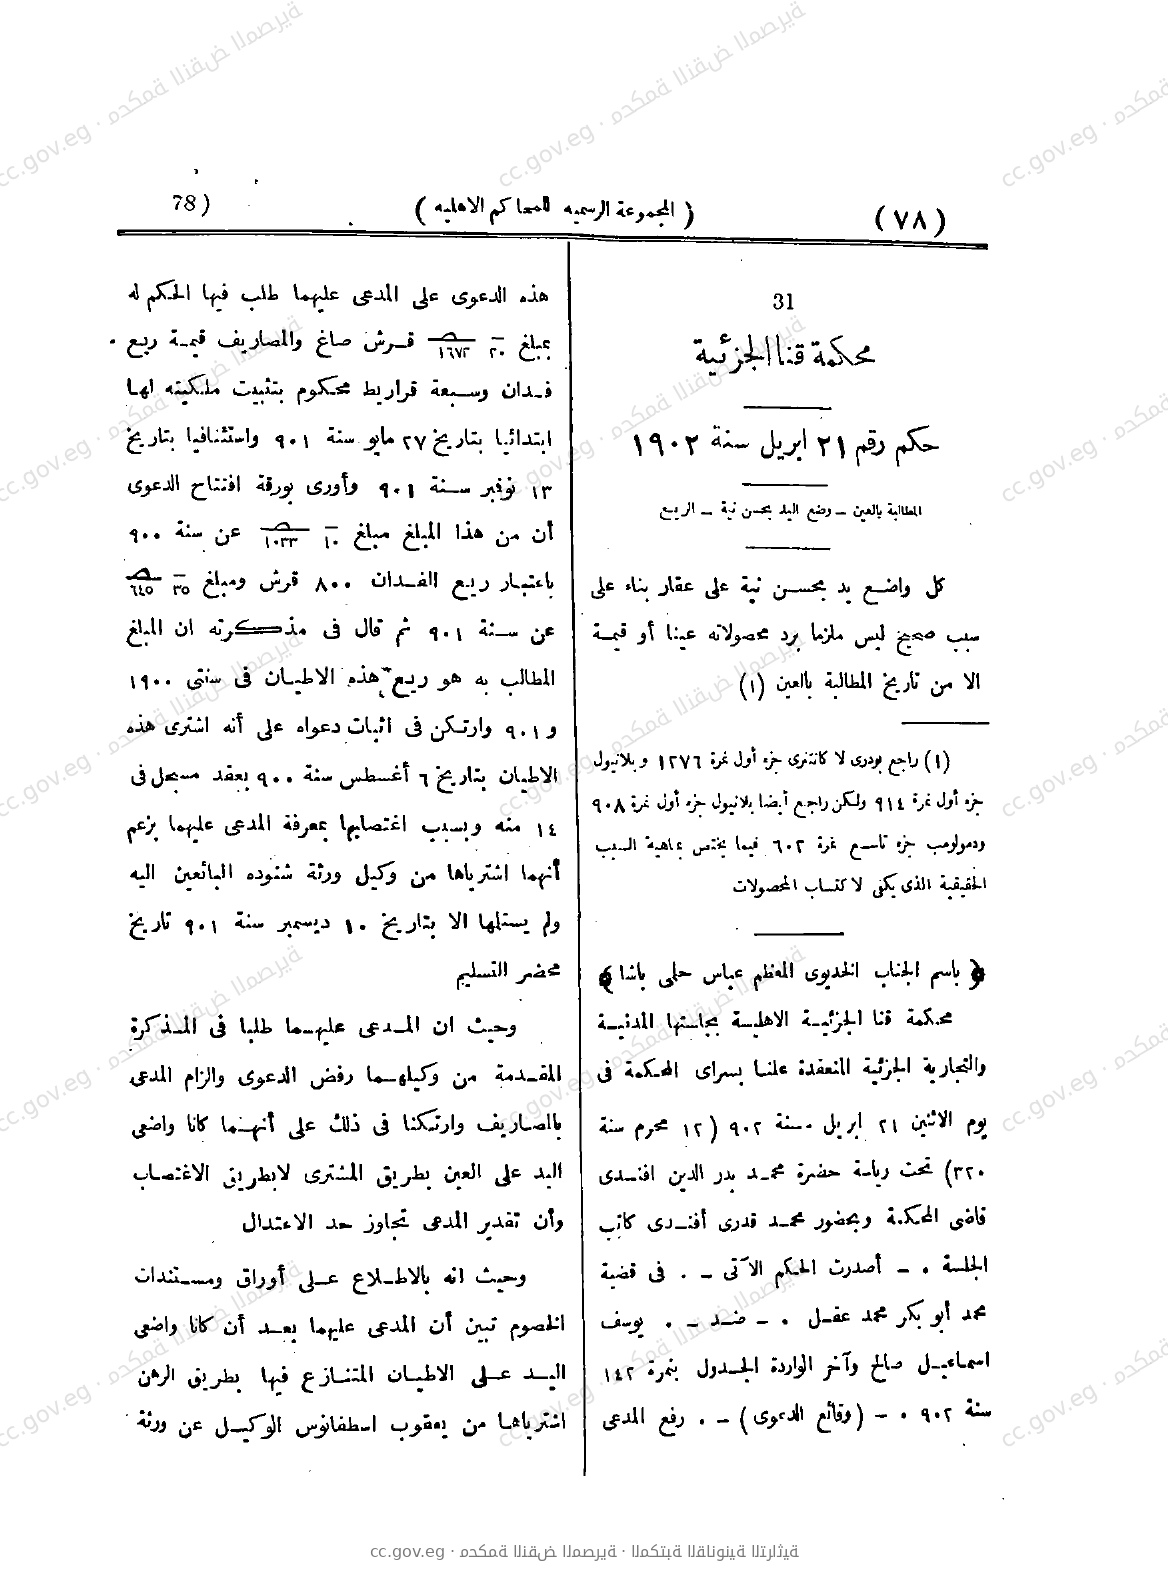 (٧٨) ( المجموعة الرسمية للمحاكم الاهليه ) 78)
31
محكمة قنا الجزئية
حكم رقم ٢١ ابريل سنة ١٩٠٢
المطالبة بالعين – وضع اليد بحسن نية – الريع
كل واضع يد بحسن نية على عقار بناء على
سبب صحيح ليس ملزما برد محصولاته عينا أو قيمة
الا من تاريخ المطالبة بالعين (١)
(١) راجع بودرى لا كانتنرى جزء أول نمرة ١٢٧٦ وبلانيول
جزء أول نمرة ٩١٤ ولكن راجع أيضا بلانيول جزء أول نمرة ٩٠٨
ودمولومب جزء تاسع نمرة ٦٠٢ فيما يختص بماهية السبب
الحقيقية الذى يكفى لا كتساب المحصولات
﴿ باسم الجناب الخديوى المعظم عباس حلمى باشا ﴾
محكمة قنا الجزئية الاهلية بجلستها المدنية
والتجارية الجزئية المنعقدة علنا بسراى المحكمة فى
يوم الاثنين ٢١ ابريل سنة ٩٠٢ (١٢ محرم سنة
٣٢٠) تحت رياسة حضرة محمد بدر الدين افندى
قاضى المحكمة وبحضور محمد قدرى أفندى كاتب
الجلسة . – أصدرت الحكم الآتى – . فى قضية
محمد أبو بكر محمد عقل . – ضد – . يوسف
اسماعيل صالح وآخر الواردة الجدول بنمرة ١٤٢
سنة ٩٠٢ . – (وقائع الدعوى) – . رفع المدعى
هذه الدعوى على المدعى عليهما طلب فيها الحكم له
بمبلغ ٢٠ ١٦٧٢ قرش صاغ والمصاريف قيمة ريع
فدان وسبعة قراريط محكوم بتثبيت ملكيته لها
ابتدائيا بتاريخ ٢٧ مايو سنة ٩٠١ واستئنافيا بتاريخ
١٣ نوفمبر سنة ٩٠١ وأورى بورقة افتتاح الدعوى
أن من هذا المبلغ مبلغ ١٠ ١٠٣٣ عن سنة ٩٠٠
باعتبار ريع الفدان ٨٠٠ قرش ومبلغ ٣٥ ٦٤٥
عن سنة ٩٠١ ثم قال فى مذكرته ان المبلغ
المطالب به هو ريع هذه الاطيان فى سنتى ١٩٠٠
و ٩٠١ وارتكن فى اثبات دعواه على أنه اشترى هذه
الاطيان بتاريخ ٦ أغسطس سنة ٩٠٠ بعقد مسجل فى
١٤ منه وبسبب اغتصابها بمعرفة المدعى عليهما بزعم
أنهما اشترياها من وكيل ورثة شنوده البائعين اليه
ولم يستلمها الا بتاريخ ١٠ ديسمبر سنة ٩٠١ تاريخ
محضر التسليم
وحيث ان المدعى عليهما طلبا فى المذكرة
المقدمة من وكيلهما رفض الدعوى والزام المدعى
بالمصاريف وارتكنا فى ذلك على أنهما كانا واضعى
اليد على العين بطريق المشترى لابطريق الاغتصاب
وأن تقدير المدعى تجاوز حد الاعتدال
وحيث انه بالاطلاع على أوراق ومستندات
الخصوم تبين أن المدعى عليهما بعد أن كانا واضعى
اليد على الاطيان المتنازع فيها بطريق الرهن
اشترياها من يعقوب اسطفانوس الوكيل عن ورثة
cc.gov.eg · محكمة النقض المصرية · المكتبة القانونية التراثية